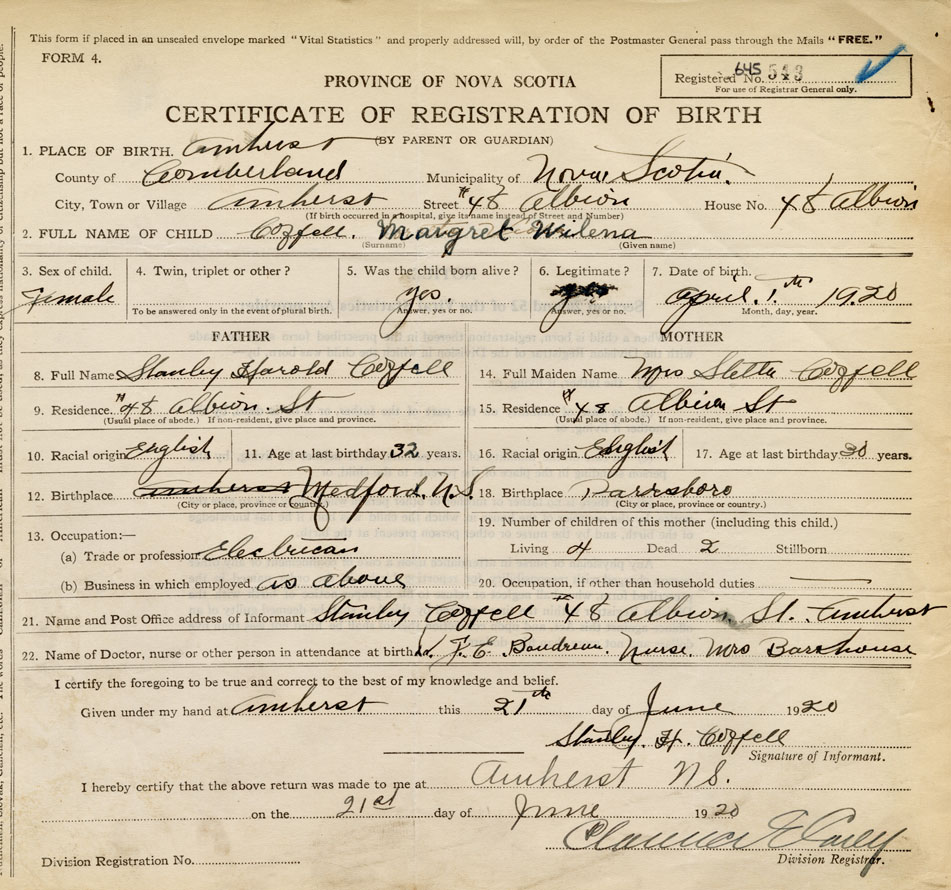 This form if placed in an unsealed envelope marked "Vital Statistics" and properly addressed will, by order of the Postmaster General pass through the Mails "FREE."
FORM 4.
Registered No. 645 543
For use of Registrar General only.
PROVINCE OF NOVA SCOTIA
CERTIFICATE OF REGISTRATION OF BIRTH
(BY PARENT OR GUARDIAN)
1. PLACE OF BIRTH. Amherst
County of Comberland Municipality of Nova Scotia.
City, Town or Village Amherst Street #48 Albion House No. 48 Albion
(If birth occurred in a hospital, give its name instead of Street and Number)
2. FULL NAME OF CHILD Margret Wilena
(Surname) (Given name)
3. Sex of child. 4. Twin, triplet or other? 5. Was the child born alive? 6. Legitimate? 7. Date of birth.
Female yes. April. 1.th 1920
To be answered only in the event of plural birth. Answer, yes or no. Answer, yes or no. Month, day, year.
FATHER MOTHER
8. Full Name Stanley Harold 14. Full Maiden Name Mrs
9. Residence. #48 Albion. St 15. Residence #48 Albion St
(Usual place of abode.) If non-resident, give place and province. (Usual place of abode.) If non-resident, give place and province.
10. Racial origin English 11. Age at last birthday 32 years. 16. Racial origin English 17. Age at last birthday 30 years.
12. Birthplace Amherst Medford. N.S. 18. Birthplace Parrsboro
(City or place, province or country.) (City or place, province or country.)
13. Occupation:— 19. Number of children of this mother (including this child.)
(a) Trade or profession Elecbrican Living 4 Dead 2 Stillborn
(b) Business in which employed as above 20. Occupation, if other than household duties
21. Name and Post Office address of Informant Stanley #48 Albion St. Amherst
22. Name of Doctor, nurse or other person in attendance at birth F. E. Boudreau. Nurse. Mrs Barkhouse
I certify the foregoing to be true and correct to the best of my knowledge and belief.
Given under my hand at Amherst this 21th day of June 1920
Stanley. H.
Signature of Informant.
I hereby certify that the above return was made to me at Amherst N.S.
on the 21st day of June 1920
Clarence
Division Registration No. Division Registrar.